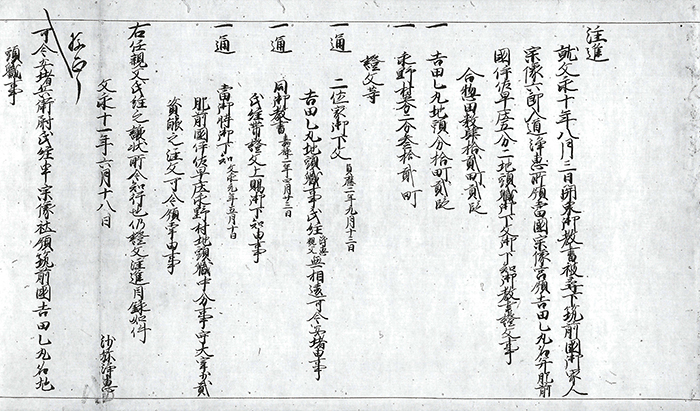 注進
就文永十年八月三日関東御教書被召下筑前國御家人
宗像六郎入道浄恵所領當國宗像宮領吉田乙丸名并肥前
國伊佐早庄五分二地頭職御下文御下知御教書證文事
合惣田数肆拾貳町貳段
一 吉田乙丸地頭分拾町貳段
一 永野村五分二分参拾貳町
證文等
一通 二位家御下文 貞應二年九月十三日
吉田乙丸地頭職事氏経与相違可令安堵由事
一通 同御教書 嘉禄二年四月廿三日
氏経賣證文上賜御下知由事
一通 當御時御下知 文永九年五月十日
肥前國伊佐早庄永野村地頭職中分事守大宰少貳
資能之注文可令領掌由事
右任親父氏経之譲状所令知行也仍證文注進目録如件
文永十一年六月十八日 沙弥浄恵
可令安堵兵衛尉氏経申宗像社領筑前國吉田乙丸名地
頭職事